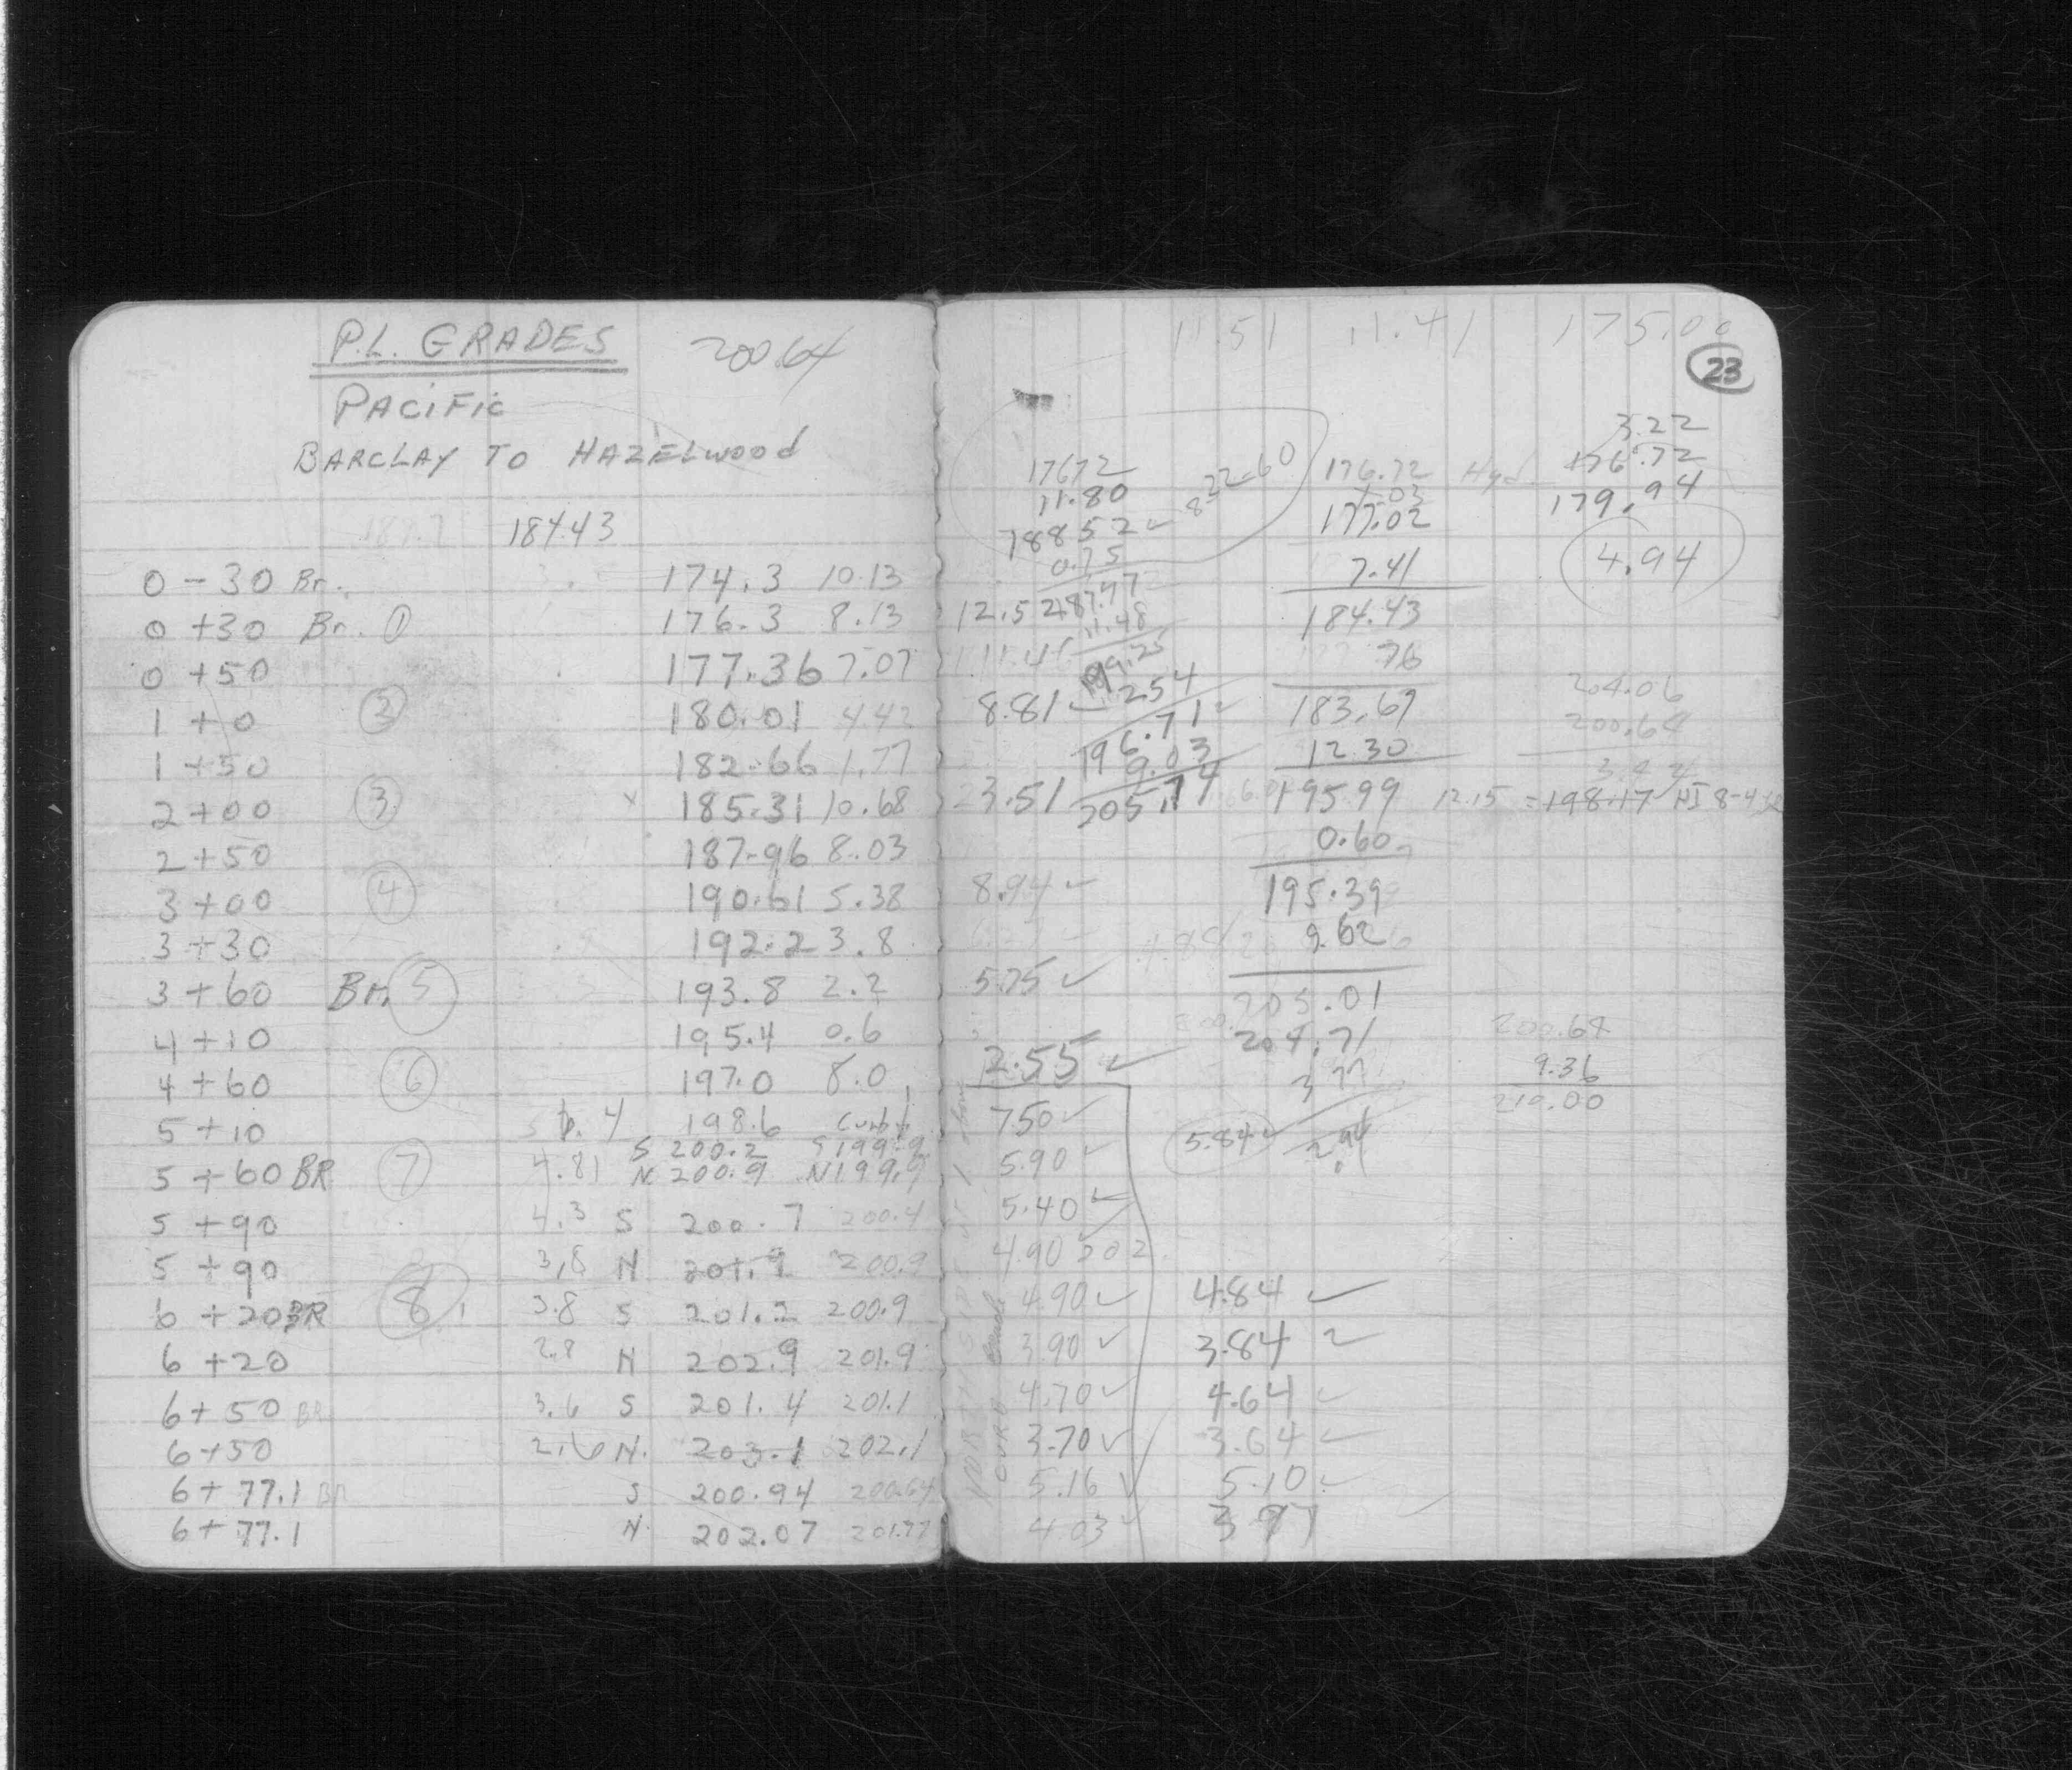 P.L. GRADES 200.64
PACIFIC
BARCLAY TO HAZELWOOD
184.43
0 - 30 Br. 174.3 10.13
0 +30 Br. ① 176.3 8.13
0 +50 177.36 7.07
1 + 0 ② 180.01 4.42
1 +50 182.66 1.77
2 +00 ③ x 185.31 10.68
2 +50 187.96 8.03
3 +00 ④ 190.61 5.38
3 +30 192.2 3.8
3 +60 Br. ⑤ 193.8 2.2
4 +10 195.4 0.6
4 +60 ⑥ 197.0 8.0
5 +10 198.6 Curb
S 200.2 S 199.9
5 +60 BR ⑦ 4.81 N 200.9 N 199.9
5 +90 4.3 S 200.7 200.4
5 +90 3.8 N 201.9 200.9
6 +20 BR ⑧ 3.8 S 201.2 200.9
6 +20 2.8 N 202.9 201.9
6+ 50 BR 3.6 S 201.4 201.1
6+50 2.6 N. 203.1 202.1
6+ 77.1 BR S 200.94 200.64
6+ 77.1 N. 202.07 201.77
11.51 11.41 175.00
23
176.72
11.80
188.52 ✓
8-22-60
0.75
187.77
11.48
199.25
2.54
196.71 ✓
9.03
205.74
12.52
11.46
8.81 ✓
23.51
8.94 ✓
5.75 ✓
2.55 ✓
7.50 ✓
5.90 ✓
5.40 ✓
4.90 202
4.90 ✓
3.90 ✓
4.70 ✓
3.70 ✓
5.16 ✓
4.03 ✓
176.72 Hyd.
177.02
7.41
184.43
76
183.67
12.30
195.99 12.15 = 198.17 HI
0.60
195.39
9.62
205.01
204.71
5.84 ✓
2.94
4.84 ✓
3.84 ✓
4.64 ✓
3.64 ✓
5.10 ✓
3.97
3.22
176.72
179.94
4.94
204.06
200.64
3.42
200.64
9.36
210.00